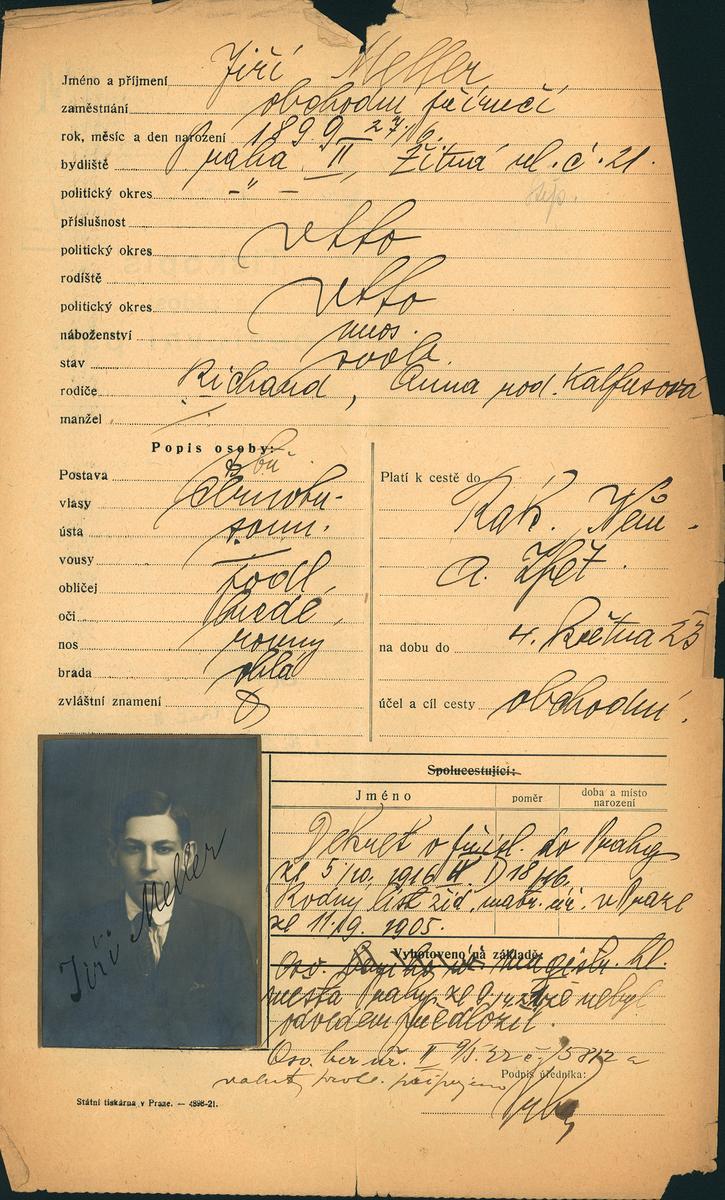 Jméno a příjmení Jiří Meller
zaměstnání obchodní příručí
rok, měsíc a den narození 1899 27/6.
bydliště Praha II, Žitná ul. č. 21.
politický okres -"-
příslušnost
politický okres detto
rodiště
politický okres detto
náboženství mos.
stav svob.
rodiče Richard, Anna rod. Kalfusová
manžel
Popis osoby:
Postava
vlasy černohn.
ústa soum.
vousy —
obličej podl.
oči hnědé,
nos rovný
brada oblá
zvláštní znamení
Platí k cestě do
Rak. Něm.
a Zpět.
na dobu do 4. května 23
účel a cíl cesty obchodní.
Spolucestující:
Jméno poměr doba a místo narození
Dekret o přísl. do Prahy
ze 5/10. 1916
Rodný list žid. matr. úř. v Praze
ze 11./9. 1905.
Vyhotoveno na základě:
Osv. magistr. hl.
města Prahy, ze nebyl
odveden předložil.
Podpis úředníka:
Jiří Meller
Státní tiskárna v Praze. — 4898-21.